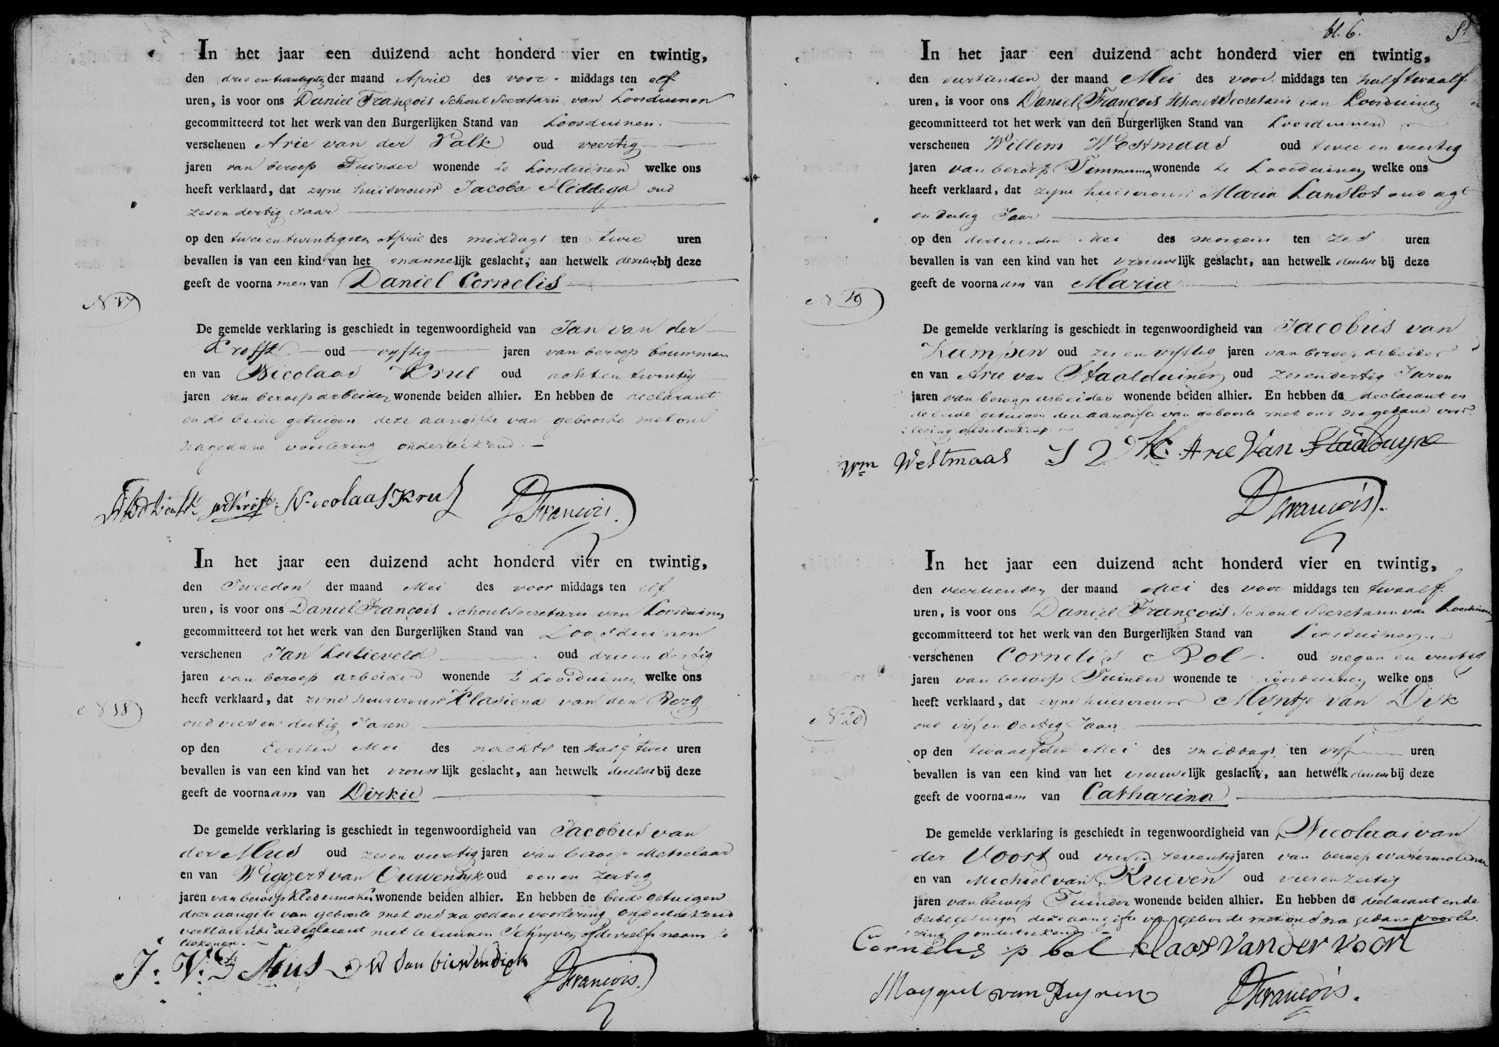 In het jaar een duizend acht honderd vier en twintig,
den drie en twintigsten der maand April des voor- middags ten elf
uren, is voor ons Daniel François Schout Secretaris van Loosduinen
gecommitteerd tot het werk van den Burgerlijken Stand van Loosduinen.
verschenen Arie van der Valk oud veertig
jaren van beroep Tuinder wonende te Loosduinen welke ons
heeft verklaard, dat zyne huisvrouw Jacoba Meddega oud
zes en dertig Jaar
op den twee en twintigsten April des middags ten twee uren
bevallen is van een kind van het mannelijk geslacht, aan hetwelk dezelve bij deze
geeft de voornamen van Daniel Cornelis
N 17
De gemelde verklaring is geschiedt in tegenwoordigheid van Jan van der
oud vyftig jaren van beroep bouwman
en van Nicolaas Krul oud acht en twintig
jaren van beroep arbeider wonende beiden alhier. En hebben de declarant
en de beide getuigen deze aangifte van geboorte met ons
na gedane voorlezing onderteekend.
Nicolaas Krul DFrancois.
In het jaar een duizend acht honderd vier en twintig,
den Tweeden der maand Mei des voor middags ten elf
uren, is voor ons Daniel François Schout Secretaris van Loosduinen
gecommitteerd tot het werk van den Burgerlijken Stand van Loosduinen
verschenen Jan Lelieveld oud drie en dertig
jaren van beroep arbeider wonende te Loosduinen welke ons
heeft verklaard, dat zyne huisvrouw Klasiena van den Berg
oud vier en dertig Jaren
N 18
op den Eersten Mei des nachts ten half twee uren
bevallen is van een kind van het vrouwlijk geslacht, aan hetwelk dezelve bij deze
geeft de voornaam van Dirkie
De gemelde verklaring is geschiedt in tegenwoordigheid van Jacobus van
der Mus oud zes en veertig jaren van beroep Metselaar
en van Wiggert van Ouwendyk oud een en zestig
jaren van beroep Kleermaker wonende beiden alhier. En hebben de beide getuigen
deze aangifte van geboorte met ons na gedane voorlezing onderteekend
verklarende de declarant niet te kunnen schryven of derzelfs naam te
teekenen.
J: V: D Mus W van ouwendijk DFrancois.
bl. 6.
In het jaar een duizend acht honderd vier en twintig,
den veertienden der maand Mei des voor middags ten half twaalf
uren, is voor ons Daniel François Schout Secretaris van Loosduinen
gecommitteerd tot het werk van den Burgerlijken Stand van Loosduinen
verschenen Willem Westmaas oud twee en veertig
jaren van beroep Timmerman wonende te Loosduinen welke ons
heeft verklaard, dat zyne huisvrouw Maria Lanslot oud agt
en dertig Jaar
op den dertienden Mei des morgens ten zes uren
bevallen is van een kind van het vrouwelijk geslacht, aan hetwelk dezelve bij deze
geeft de voornaam van Maria
N 19
De gemelde verklaring is geschiedt in tegenwoordigheid van Jacobus van
Kampen oud zes en vyftig jaren van beroep arbeider
en van Arie van Staalduinen oud zes en dertig Jaren
jaren van beroep arbeider wonende beiden alhier. En hebben de declarant en
de beide getuigen deze aangifte van geboorte met ons na gedane voor
lezing onderteekend
Wm Westmaas Arie Van Staalduyne
DFrancois.
In het jaar een duizend acht honderd vier en twintig,
den veertienden der maand Mei des voor middags ten twaalf
uren, is voor ons Daniel François Schout Secretaris van Loosduinen
gecommitteerd tot het werk van den Burgerlijken Stand van Loosduinen
verschenen Cornelis Bol oud negen en veertig
jaren van beroep Tuinder wonende te Loosduinen welke ons
heeft verklaard, dat zyne huisvrouw Myntje van Dyk
oud vyf en dertig Jaar
N 20
op den twaalfden Mei des middags ten vyf uren
bevallen is van een kind van het vrouwelijk geslacht, aan hetwelk dezelve bij deze
geeft de voornaam van Catharina
De gemelde verklaring is geschiedt in tegenwoordigheid van Nicolaas van
der Voort oud zeventig jaren van beroep
en van Michiel van Ruiven oud vier en zestig
jaren van beroep Tuinder wonende beiden alhier. En hebben de declarant en de
beide getuigen deze aangifte van geboorte met ons na gedane voorle
zing onderteekend
Cornelis p bol klaas van der voort
Mayguel van Ruyven DFrancois.